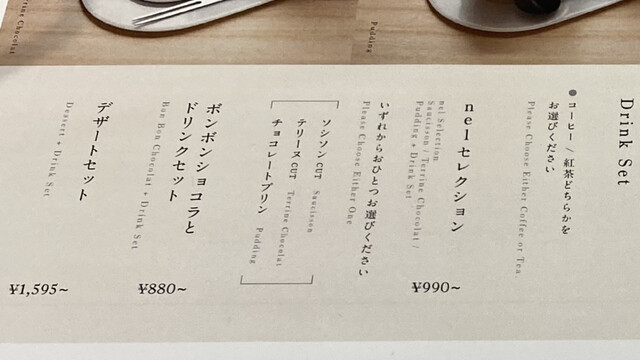 Terrine Chocolat
Pudding
Drink Set
●コーヒー / 紅茶どちらかを
お選びください
Please Choose Either Coffee or Tea
nelセレクション
nel Selection
Saucisson / Terrine Chocolat /
Pudding + Drink Set
¥990~
いずれからおひとつお選びください
Please Choose Either One
ソシソンCUT Saucisson
テリーヌCUT Terrine Chocolat
チョコレートプリン Pudding
ボンボンショコラと
ドリンクセット
Bon Bon Chocolat + Drink Set
¥880~
デザートセット
Dessert + Drink Set
¥1,595~